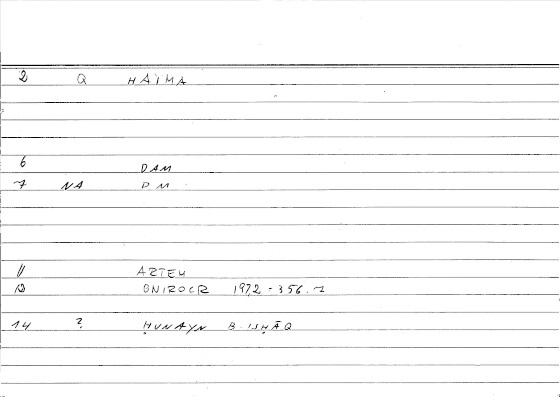 2 Q HAÏMA
6 DAM
7 NA DM
11 ARTEM
12 ONIROCR 1972 - 356.7
14 ? ḤUNAYN B. ISḤĀQ